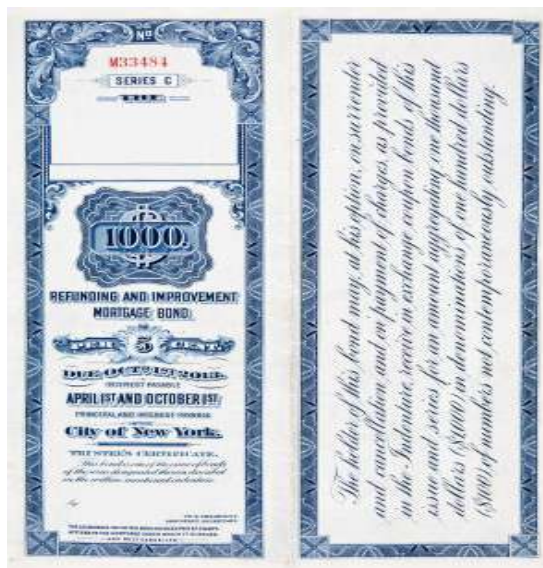 No
M33484
SERIES C
1000.
REFUNDING AND IMPROVEMENT
MORTGAGE BOND.
PER 5 CENT.
DUE OCT. 1ST 2013.
INTEREST PAYABLE
APRIL 1ST AND OCTOBER 1ST.
PRINCIPAL AND INTEREST PAYABLE
City of New York.
TRUSTEE'S CERTIFICATE.
This bond is one of the series of bonds
By
The holder of this bond may, at his option, on surrender
and cancellation and on payment of charges, as provided
in the Indenture, receive in exchange coupon bonds of this
issue and series for an amount aggregating one thousand
dollars ($1000) in denominations of one hundred dollars
($100) of numbers not contemporaneously outstanding.